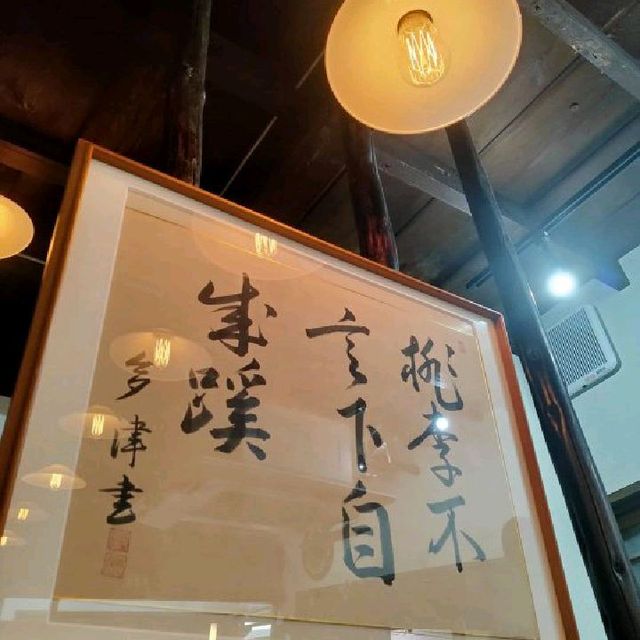 桃李不
言下自
成蹊
多津書